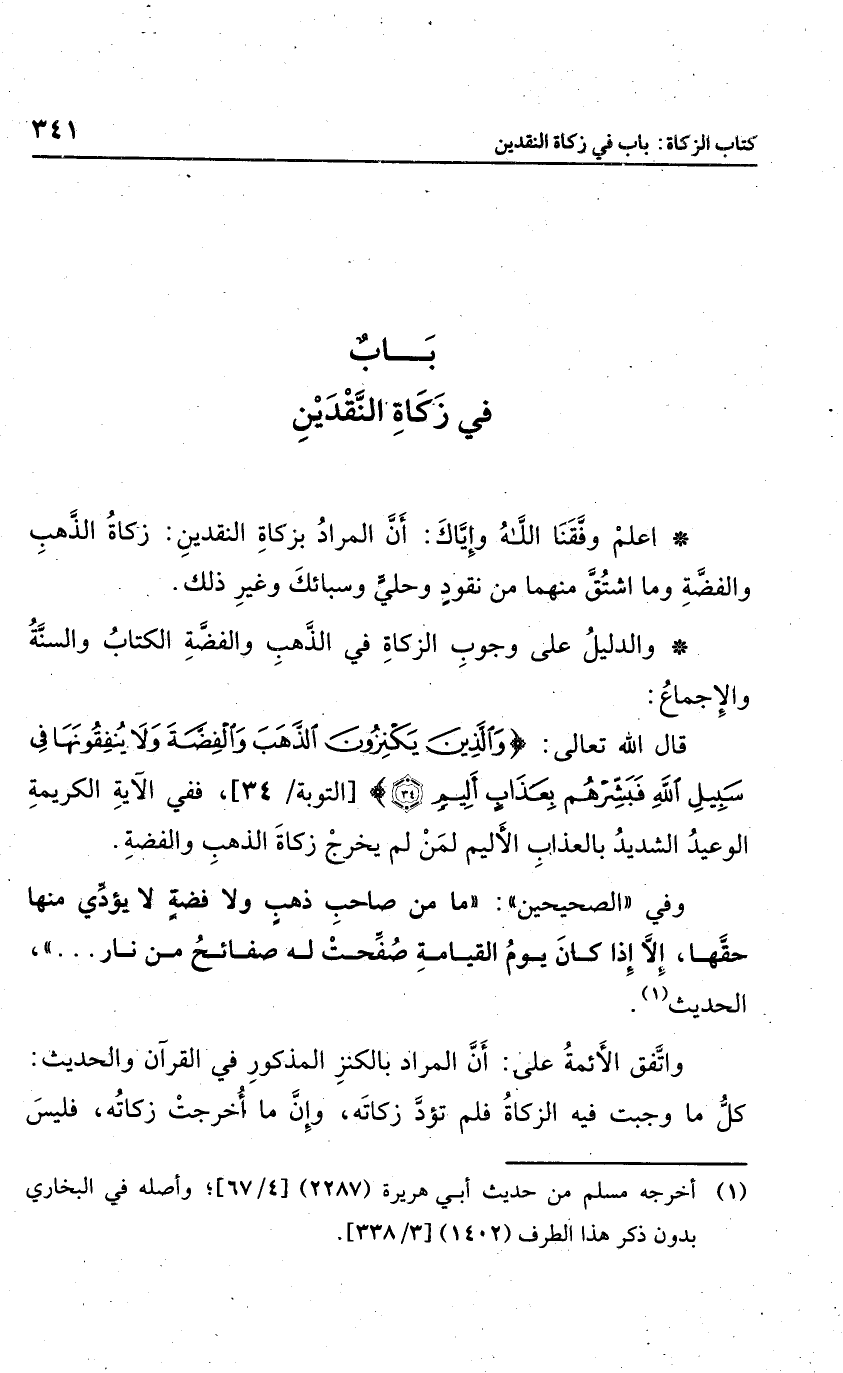 كتاب الزكاة: باب في زكاة النقدين
٣٤١
بَـــابٌ
في زَكَاةِ النَّقْدَيْنِ
* اعلمْ وفَّقَنَا اللَّـهُ وإِيَّاكَ: أَنَّ المرادُ بزكاةِ النقدينِ: زكاةُ الذَّهبِ
والفضَّةِ وما اشتُقَّ منهما من نقودٍ وحليٍّ وسبائكَ وغيرِ ذلك.
* والدليلُ على وجوبِ الزكاةِ في الذَّهبِ والفضَّةِ الكتابُ والسنَّةُ
والإجماعُ:
قال الله تعالى: ﴿وَٱلَّذِينَ يَكْنِزُونَ ٱلذَّهَبَ وَٱلْفِضَّةَ وَلَا يُنفِقُونَهَا فِى
سَبِيلِ ٱللَّهِ فَبَشِّرْهُم بِعَذَابٍ أَلِيمٍ ٣٤﴾ [التوبة/ ٣٤]، ففي الآيةِ الكريمةِ
الوعيدُ الشديدُ بالعذابِ الأليم لمَنْ لم يخرجْ زكاةَ الذهبِ والفضةِ.
وفي «الصحيحين»: «ما من صاحبِ ذهبٍ ولا فضةٍ لا يؤدِّي منها
حقَّهـا، إِلاَّ إِذا كـانَ يـومُ القيـامـةِ صُفِّحـتْ لـه صفـائـحُ مـن نـار...»،
الحديث(١).
واتَّفق الأَئمةُ على: أَنَّ المراد بالكنزِ المذكورِ في القرآن والحديث:
كلُّ ما وجبت فيه الزكاةُ فلم تؤدَّ زكاتَه، وإِنَّ ما أُخرجتْ زكاتُه، فليسَ
(١) أخرجه مسلم من حديث أبـي هريرة (٢٢٨٧) [٤/ ٦٧]؛ وأصله في البخاري
بدون ذكر هذا الطرف (١٤٠٢) [٣/ ٣٣٨].